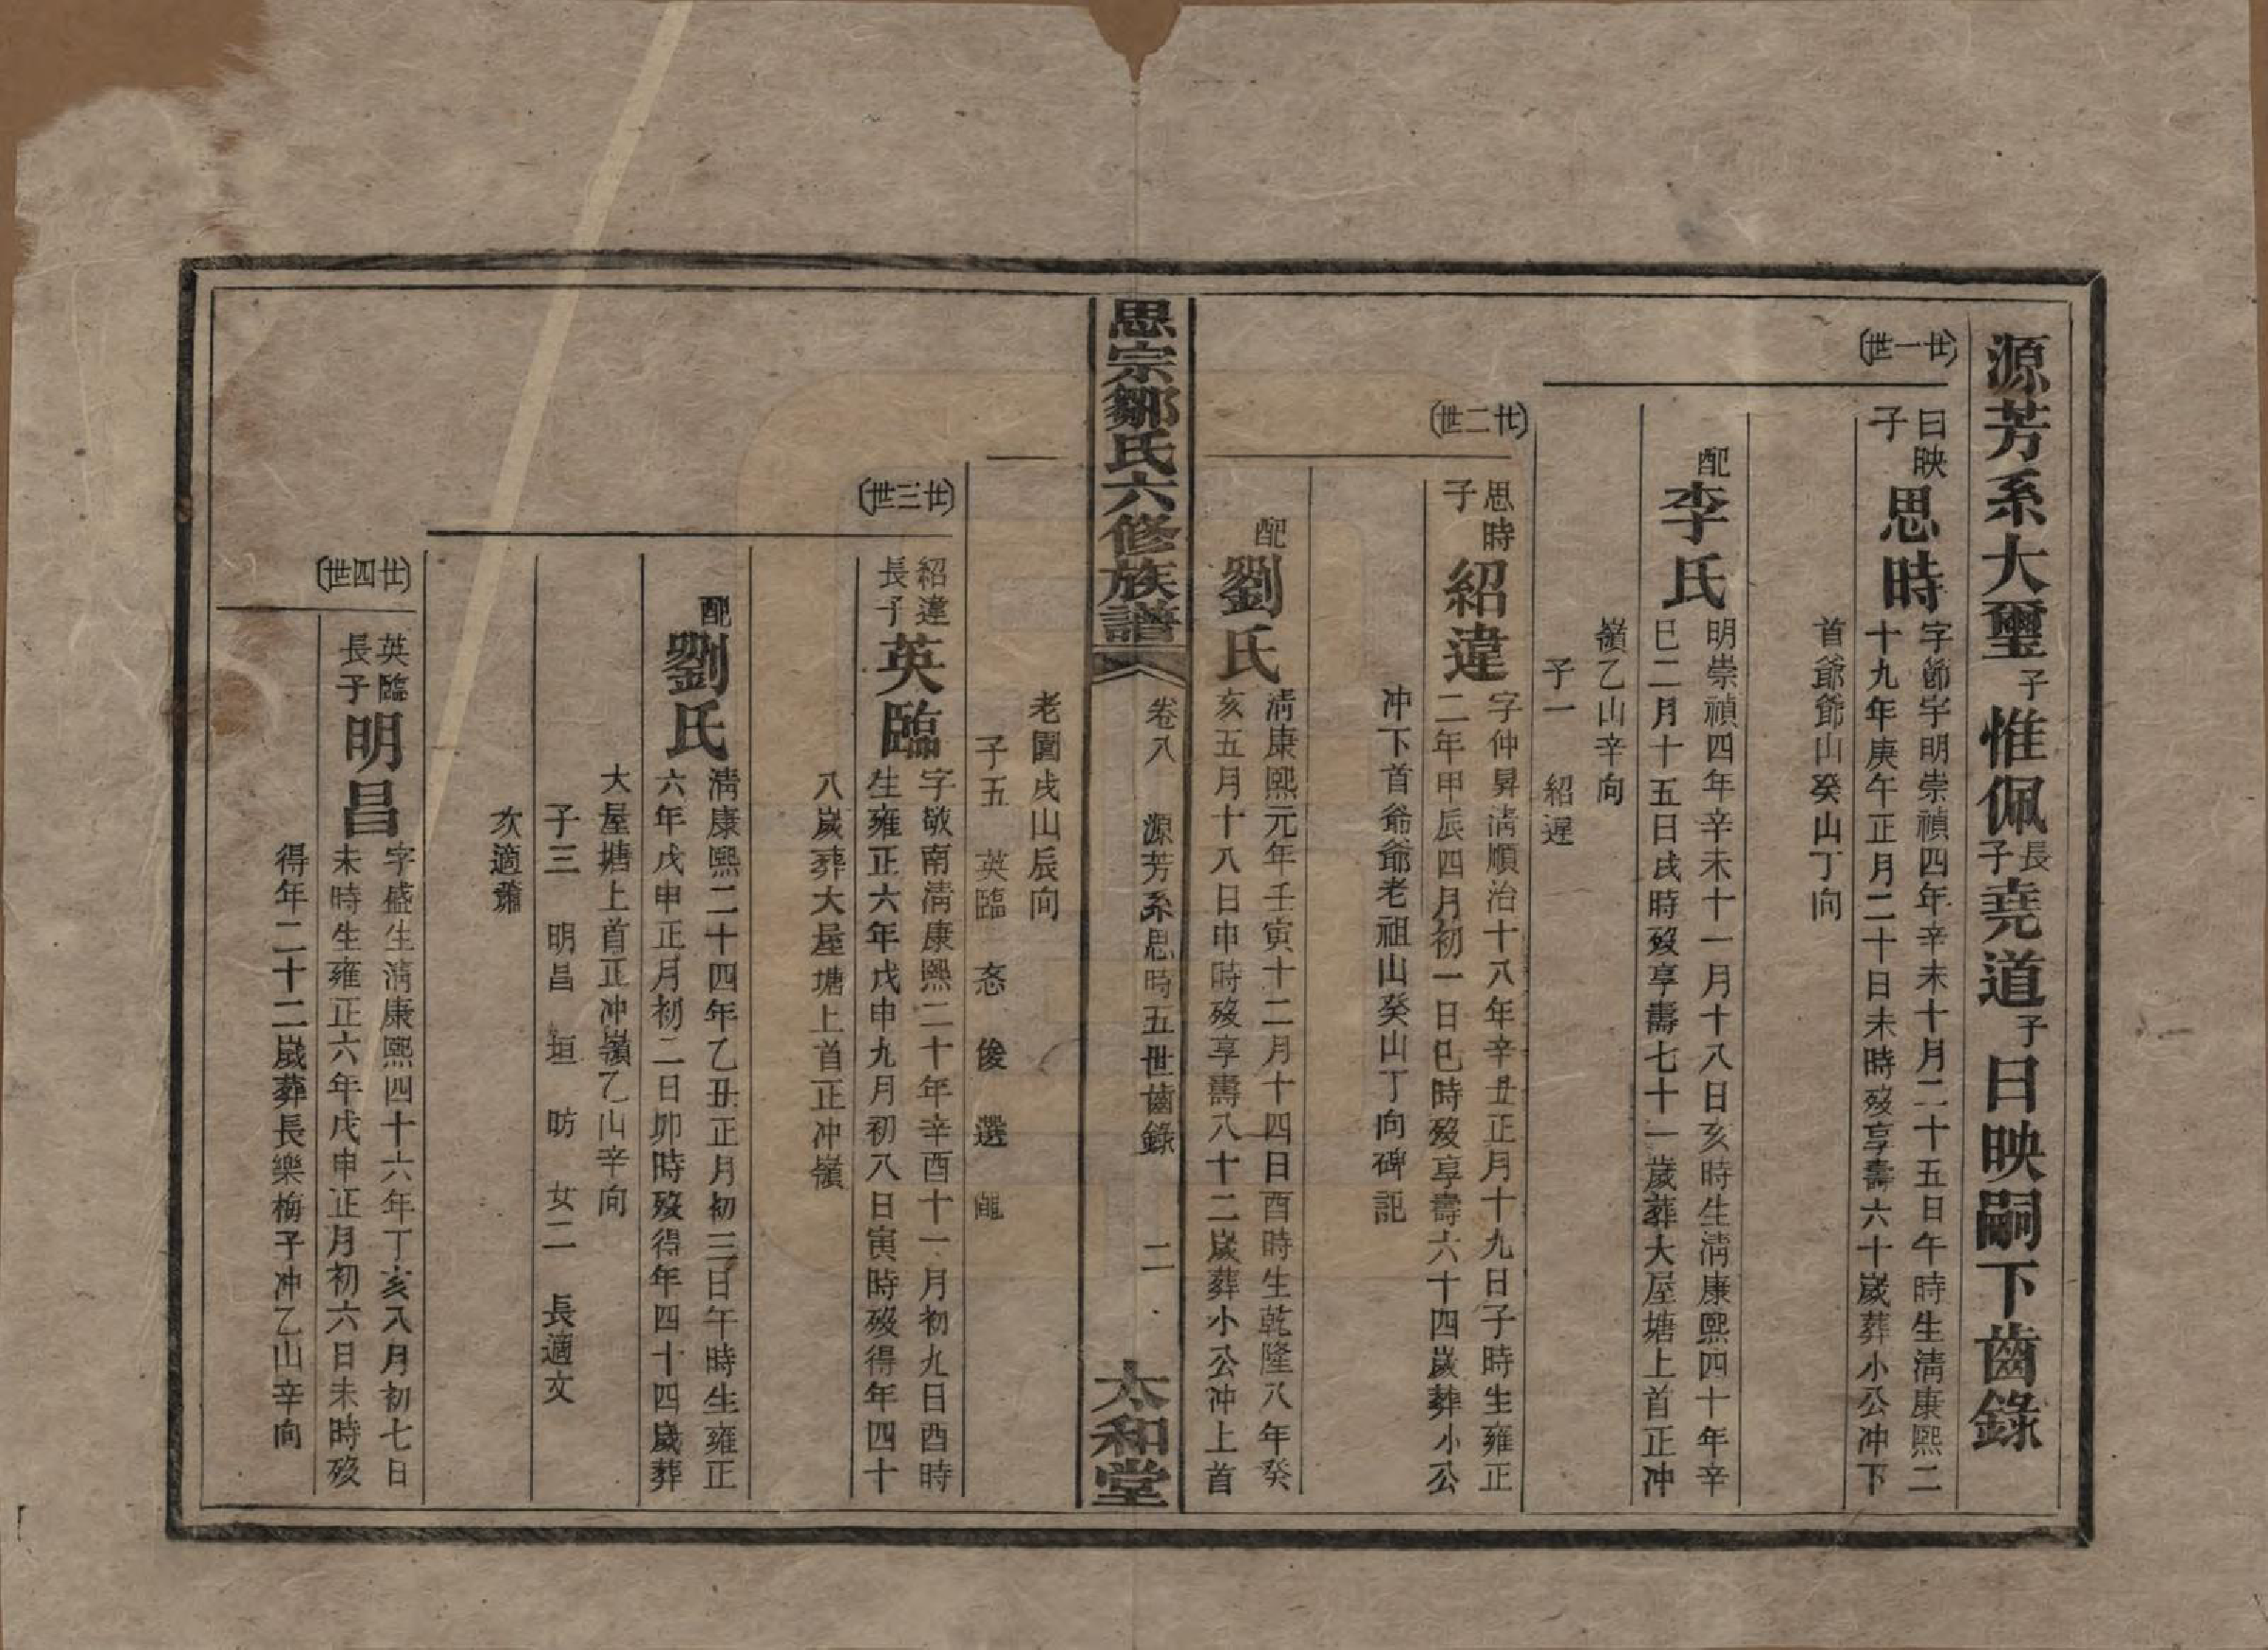 源芳系大璽子惟佩長子堯道子日映嗣下齒錄
廿一世
日映
子
思時
字節宇明崇禎四年辛未十月二十五日午時生淸康熙二
十九年庚午正月二十日未時歿享壽六十歲葬小公冲下
首爺爺山癸山丁向
配
李氏
明崇禎四年辛未十一月十八日亥時生淸康熙四十年辛
巳二月十五日戌時歿享壽七十一歲葬大屋塘上首正冲
嶺乙山辛向
子一 紹違
廿二世
思時
子
紹違
字仲昇淸順治十八年辛丑正月十九日子時生雍正
二年甲辰四月初一日巳時歿享壽六十四歲葬小公
冲下首爺爺老祖山癸山丁向碑記
配
劉氏
淸康熙元年壬寅十二月十四日酉時生乾隆八年癸
亥五月十八日申時歿享壽八十二歲葬小公冲上首
思宗鄒氏六修族譜
卷八 源芳系思時五世齒錄 二
太和堂
老園戌山辰向
子五 英臨 忞 俊 選
廿三世
紹違
長子
英臨
字敬南淸康熙二十年辛酉十一月初九日酉時
生雍正六年戊申九月初八日寅時歿得年四十
八歲葬大屋塘上首正冲嶺
配
劉氏
淸康熙二十四年乙丑正月初三日午時生雍正
六年戊申正月初二日卯時歿得年四十四歲葬
大屋塘上首正冲嶺乙山辛向
子三 明昌 垣 昉 女二 長適文
次適蕭
廿四世
英臨
長子
明昌
字盛生淸康熙四十六年丁亥八月初七日
未時生雍正六年戊申正月初六日未時歿
得年二十二歲葬長樂梅子冲乙山辛向